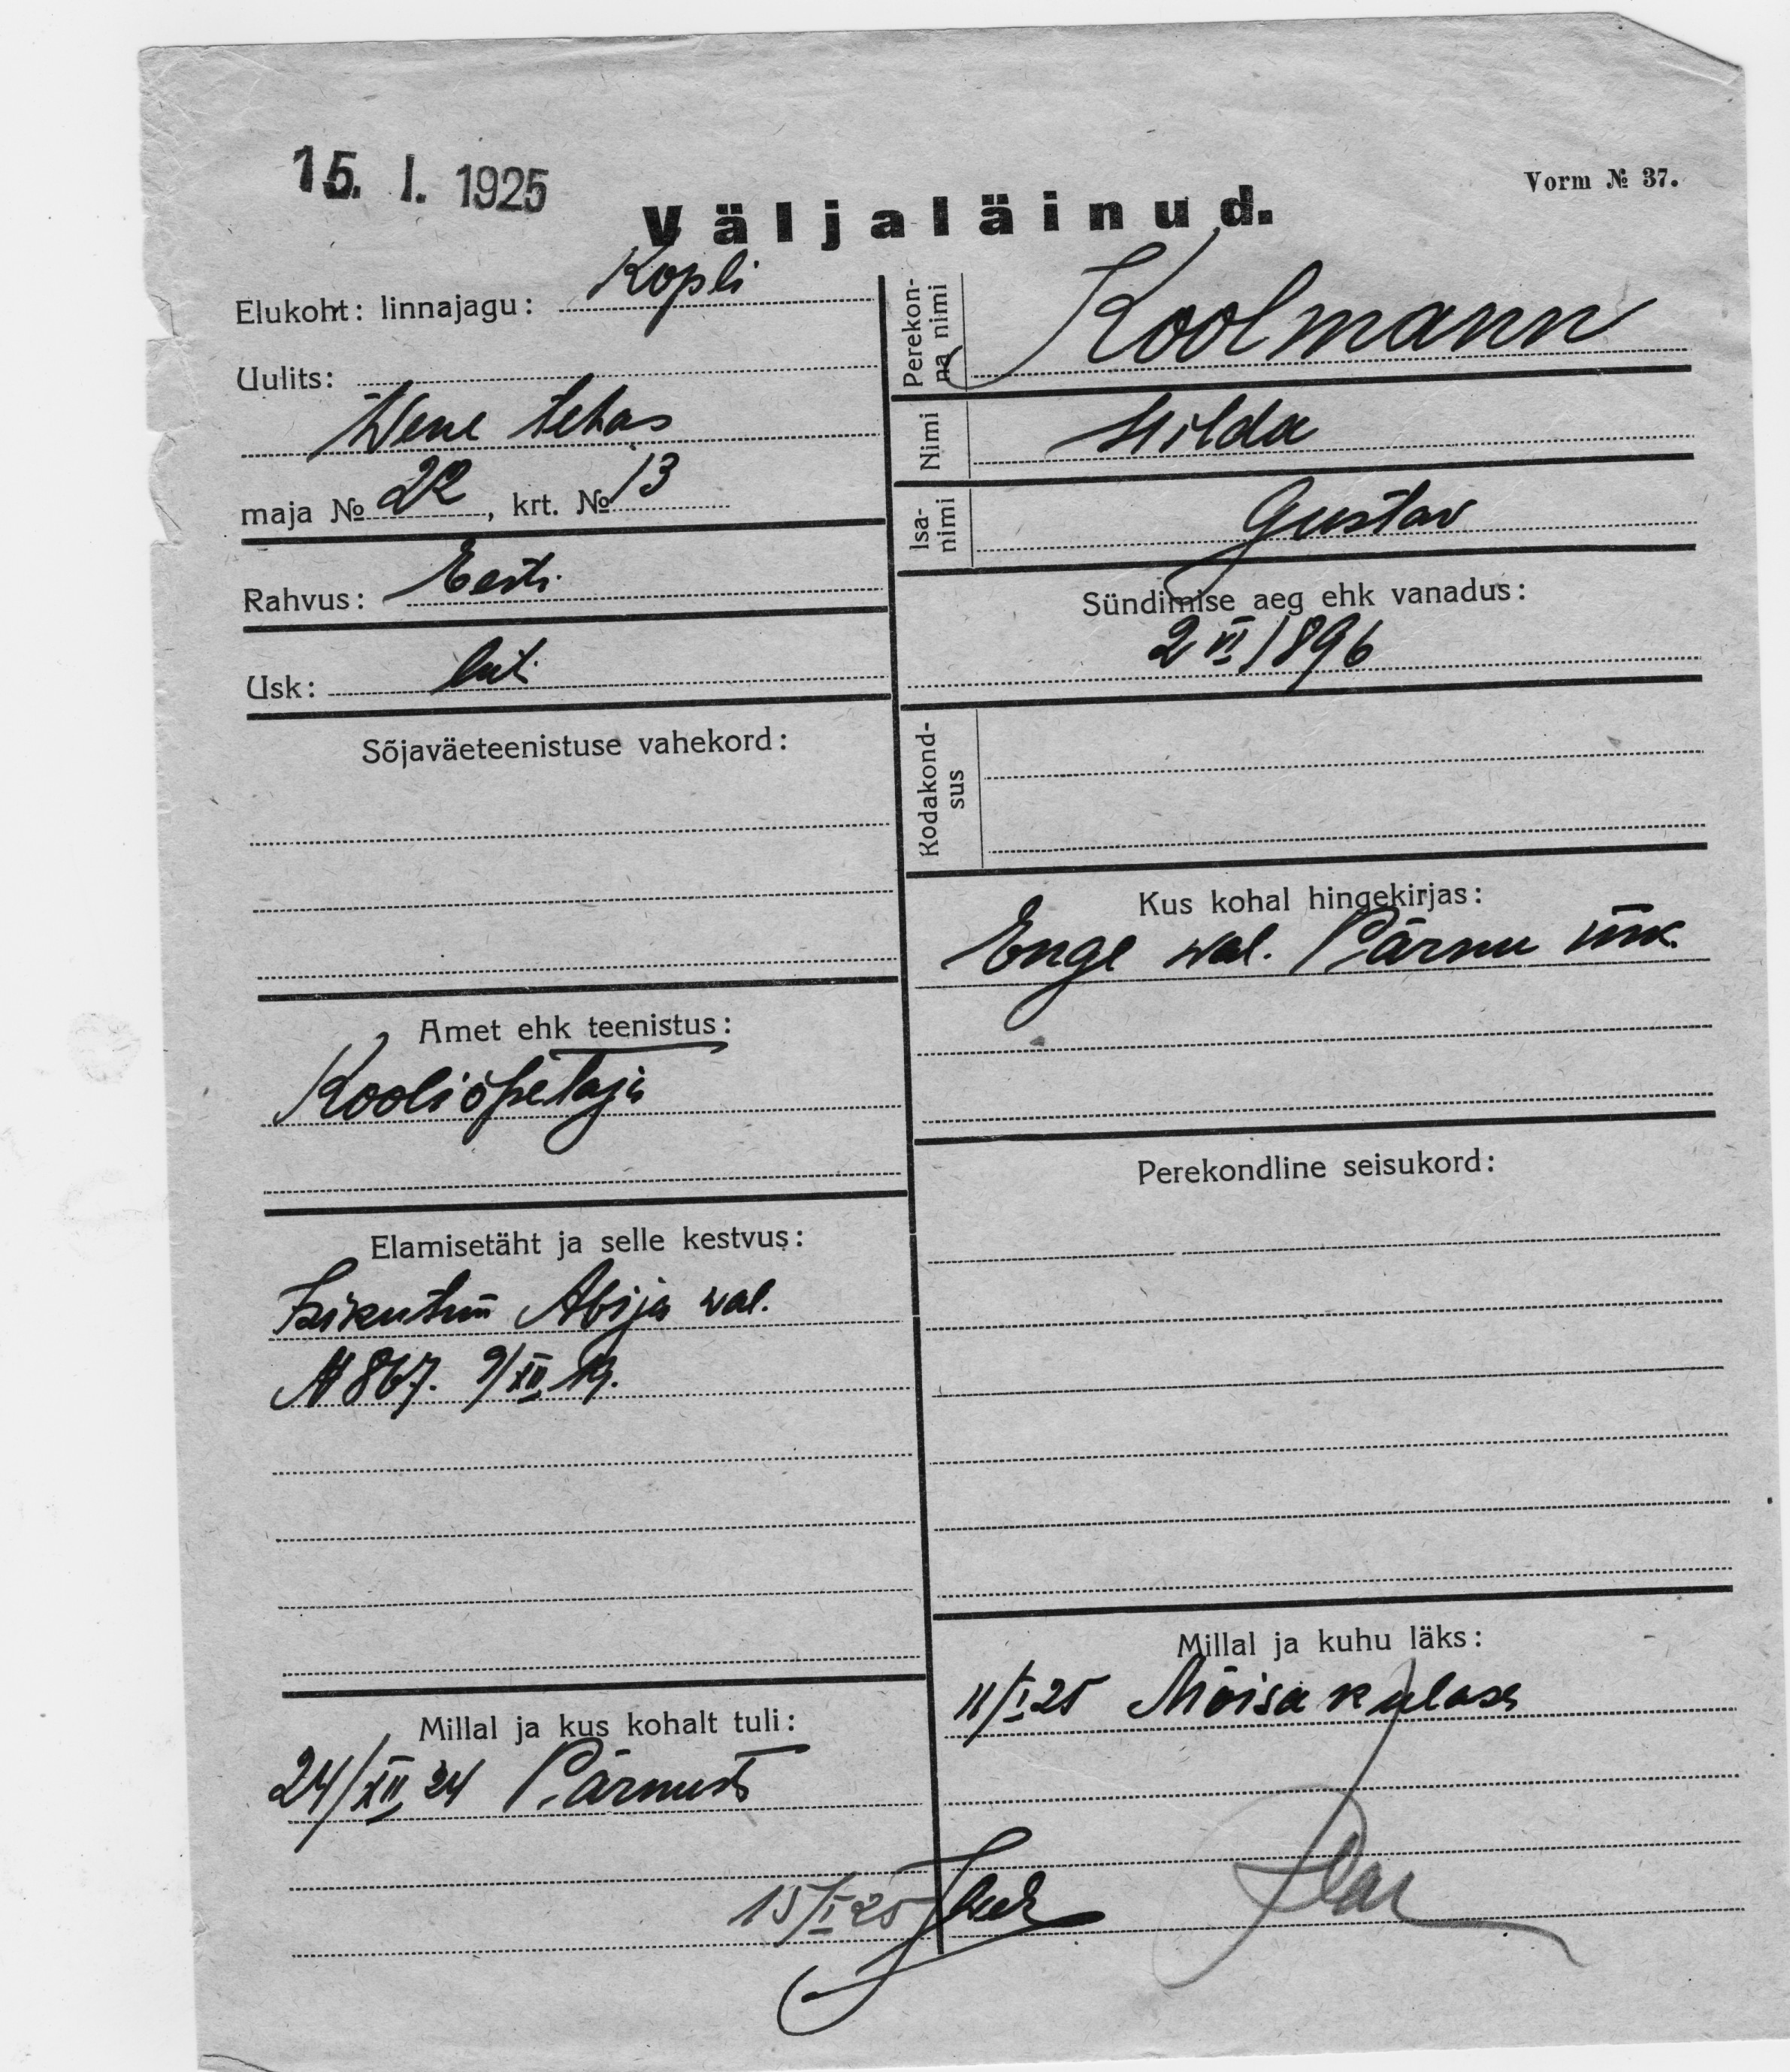 15. I. 1925
Vorm № 37.
Väljaläinud.
Elukoht: linnajagu: Kopli
Uulits:
Wene tehas
maja № 22, krt. № 13
Rahvus: Eesti
Usk: lut.
Sõjaväeteenistuse vahekord:
Amet ehk teenistus:
Kooliõpetaja
Elamisetäht ja selle kestvus:
Isikutun Abija wal.
№ 867. 9/XII 19.
Millal ja kus kohalt tuli:
24/XII 24 Pärnust
15/I 25
Perekon-
na nimi
Koolmann
Nimi Hilda
Isa-
nimi
Gustav
Sündimise aeg ehk vanadus:
2 VI 1896
Kodakond-
sus
Kus kohal hingekirjas:
Enge wal. Pärnu mk.
Perekondline seisukord:
Millal ja kuhu läks:
11/I 25 Mõisakülase